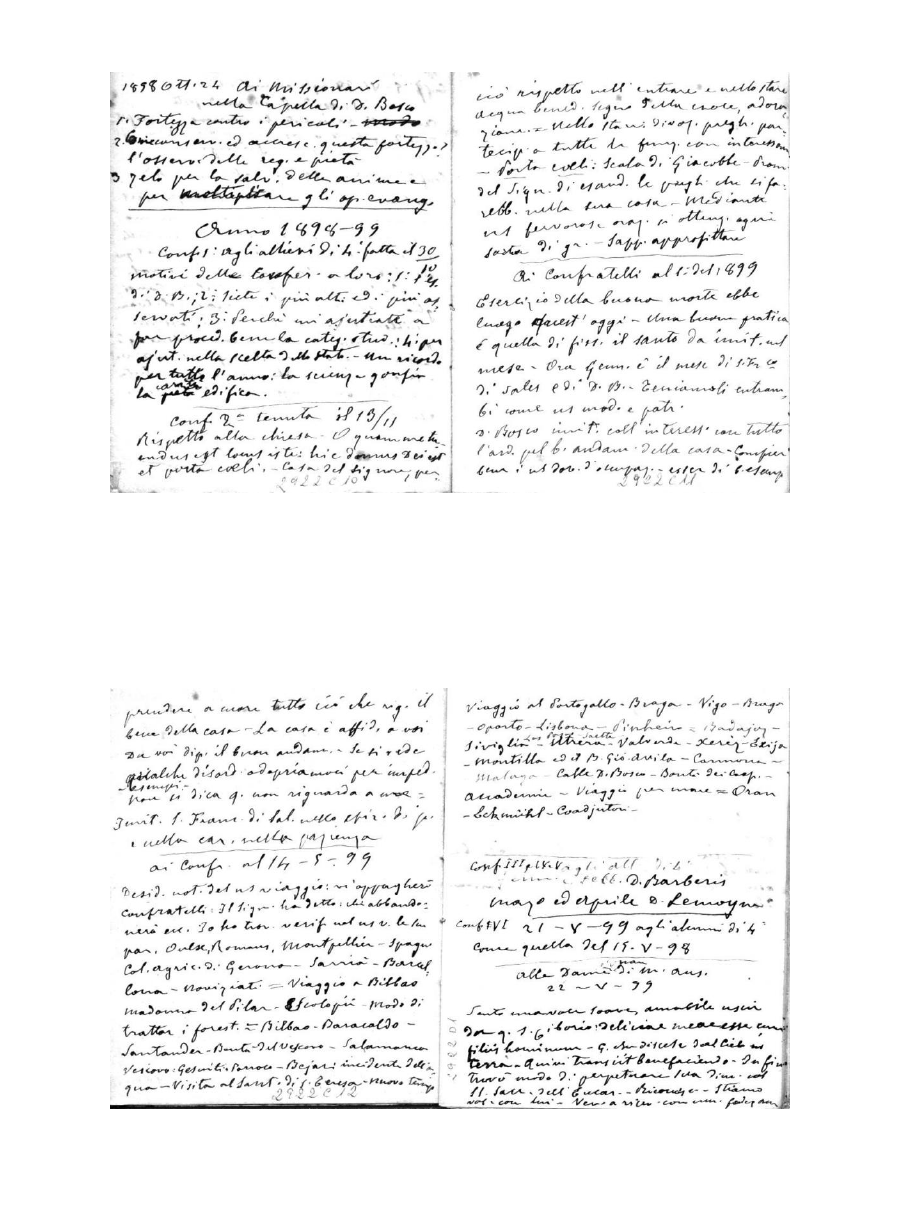 1898 Ott. 24 Ai Missionari
nella Capella di D. Bosco
1. Fortezza contro i pericoli -
2. conserv. ed accresc. questa fortezza?
l'osserv. delle reg. e pietà
3 zelo per la salv. delle anime e
per gli op. evang.
Anno 1898-99
Conf. 1ª agli allievi di 4ª fatta il 30/10
motivi delle confer. a loro: 1:
di D. B.; 2: siete i più alti ed i più os
servati; 3: Perchè mi ajutiate a
far proced. bene la categ. stud.; 4: per
ajut. nella scelta dello stato. - Un ricordo
per tutto l'anno: la scienza gonfia
la carità edifica.
Conf. 2ª tenuta il 13/11
Rispetto alla chiesa. O quam metu
endus est locus iste: hic domus Dei est
et porta coeli. - Casa del Signore, per
2922 C 10
ciò rispetto nell'entrare e nello stare
acqua bened. segno della croce, adora
zione. = Nello stare divoz. pregh. par
tecip. a tutte le funz. con interessam
- Porta coeli: Scala di Giacobbe - Prom
del Sign. di esaud. le pregh. che si fa:
rebb. nella sua casa - Mediante
una fervorosa oraz. si otteng. ogni
sorta di gr. - Sapp. approfittare
Ai Confratelli al 1: del 1899
Esercizio della buona morte ebbe
luogo quest'oggi - Una buona pratica
è quella di fiss. il santo da imit. nel
mese - Ora Genn. è il mese di S. Fr. co
di Sales e di D. B. - Teniamoli entram
bi come ns mod. e patr.
D. Bosco imit. coll'interess. con tutto
l'ard. pel b. andam. della casa - Compier
bene i ns dov. d'occupaz. - esser di b. esemp
2922 C 11
prendere a cuore tutto ciò che rig. il
bene della casa - La casa è affid. a voi
Da voi dip. il buon andam. - Se si vede
qualche disord. adopriamoci per imped.
non si dica q. non riguarda a me =
Imit. S. Franc. di Sal. nello spir. di p.
e nella car. nella pazienza
ai Confr. al 14-5-99
Desid. not. del ns viaggio: vi appagherò
confratelli: Il Sign. ha detto: chi abbando:
nerà ecc. Io ho trov. verif. nel ns v. le sue
par. Oulx, Romans, Montpellier - Spagna
Col. agric. di Gerona - Sarrià - Barcel
lona - Noviziati = Viaggio a Bilbao
Madonna del Pilar - Scolopii - Modo di
trattar i forest. = Bilbao - Baracaldo -
Santander - Bontà del Vescovo - Salamanca
Vescovo - Gesuiti - Parroco - Bejar: incidente dell'a
qua - Visita al Sant. di S. Teresa - Nuovo tempio
2922 C 12
Viaggio al Portogallo - Braga - Vigo - Braga
- Oporto - Lisbona - Pinheiro = Badajoz -
Siviglia - Utrera - Valverde - Xerez - Ecija
- Montilla ed il B. Gio Avila - Carmona -
Malaga - Calle D. Bosco - Bontà dei Coop. -
Accademie - Viaggio per mare = Oran
- Eckmühl - Coadjutori -
Conf. III, IV, V agli all. di 4ª
D. Barberis
marzo ed aprile D. Lemoyne
Conf. VI 21-V-99 agli alunni di 4ª
Come quella del 15-V-98
alle Dame di M. Aus.
22-V-99
Sento una voce soave, amabile uscir
da q. S. Ciborio: deliciae meae esse cum
filiis hominum - G. che discese dal Cielo in
terra - Quivi transiit benefaciendo - In fine
trovò modo di perpetuare sua dim. con
SS. Sacr. dell'Eucar. - Stiamo